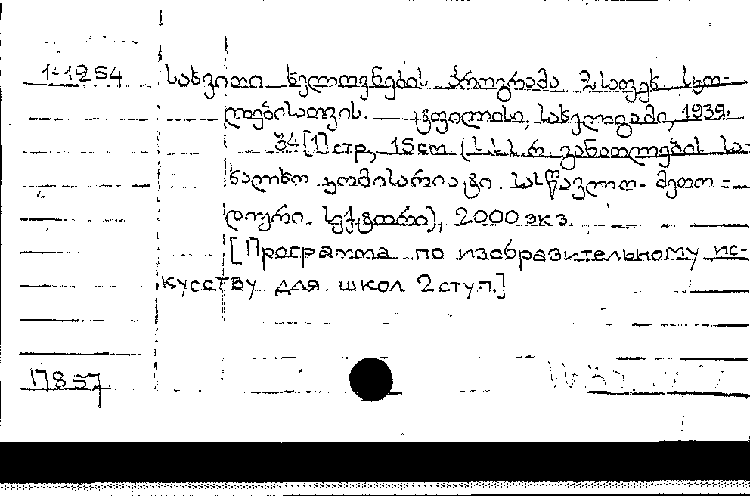 1-19254 სახვითი ხელოვნების პროგრამა 2 საფეხ. სკო-
ლებისათვის. — ტფილისი, სახელგამი, 1939.
34[1] стр, 15 см (ს.ს.ს.რ. განათლების სა-
ხალხო კომისარიატი. სასწავლო-მეთო-
დიური. სექტორი), 2000 экз.
[Программа по изобразительному ис-
кусству для школ 2 ступ.]
17857